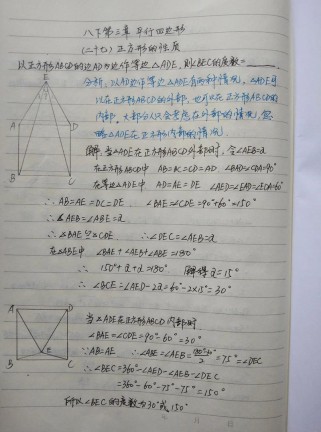 八下第三章 平行四边形
(二十七) 正方形的性质
以正方形ABCD的边AD为边作等边△ADE, 则∠BEC的度数=______.
分析: 以AD边作等边△ADE有两种情况, △ADE可
以在正方形ABCD的外部, 也可以在正方形ABCD的
内部, 大部分人只会考虑在外部的情况, 忽
略△ADE在正方形内部的情况.
E
A
D
B
C
解: 当△ADE在正方形ABCD外部时, 令∠AEB=α
在正方形ABCD中 AB=BC=CD=AD ∠BAD=∠CDA=90°
在等边△ADE中 AD=AE=DE ∠AED=∠EAD=∠EDA=60°
∴ AB=AE=DC=DE ∠BAE=∠CDE=90°+60°=150°
∴ ∠AEB=∠ABE=α
∴ △BAE≌△CDE ∴ ∠DEC=∠AEB=α
在△ABE中 ∠BAE+∠AEB+∠ABE=180°
∴ 150°+α+α=180° 解得 α=15°
∴ ∠BCE=∠AED-2α=60°-2×15°=30°
A
D
E
B
C
当△ADE在正方形ABCD内部时
∠BAE=∠CDE=90°-60°=30°
∵ AB=AE ∴ ∠ABE=∠AEB=(180°-30°)/2=75°=∠DEC
∴ ∠BEC=360°-∠AED-∠AEB-∠DEC
=360°-60°-75°-75°=150°
所以∠BEC的度数为30°或150°